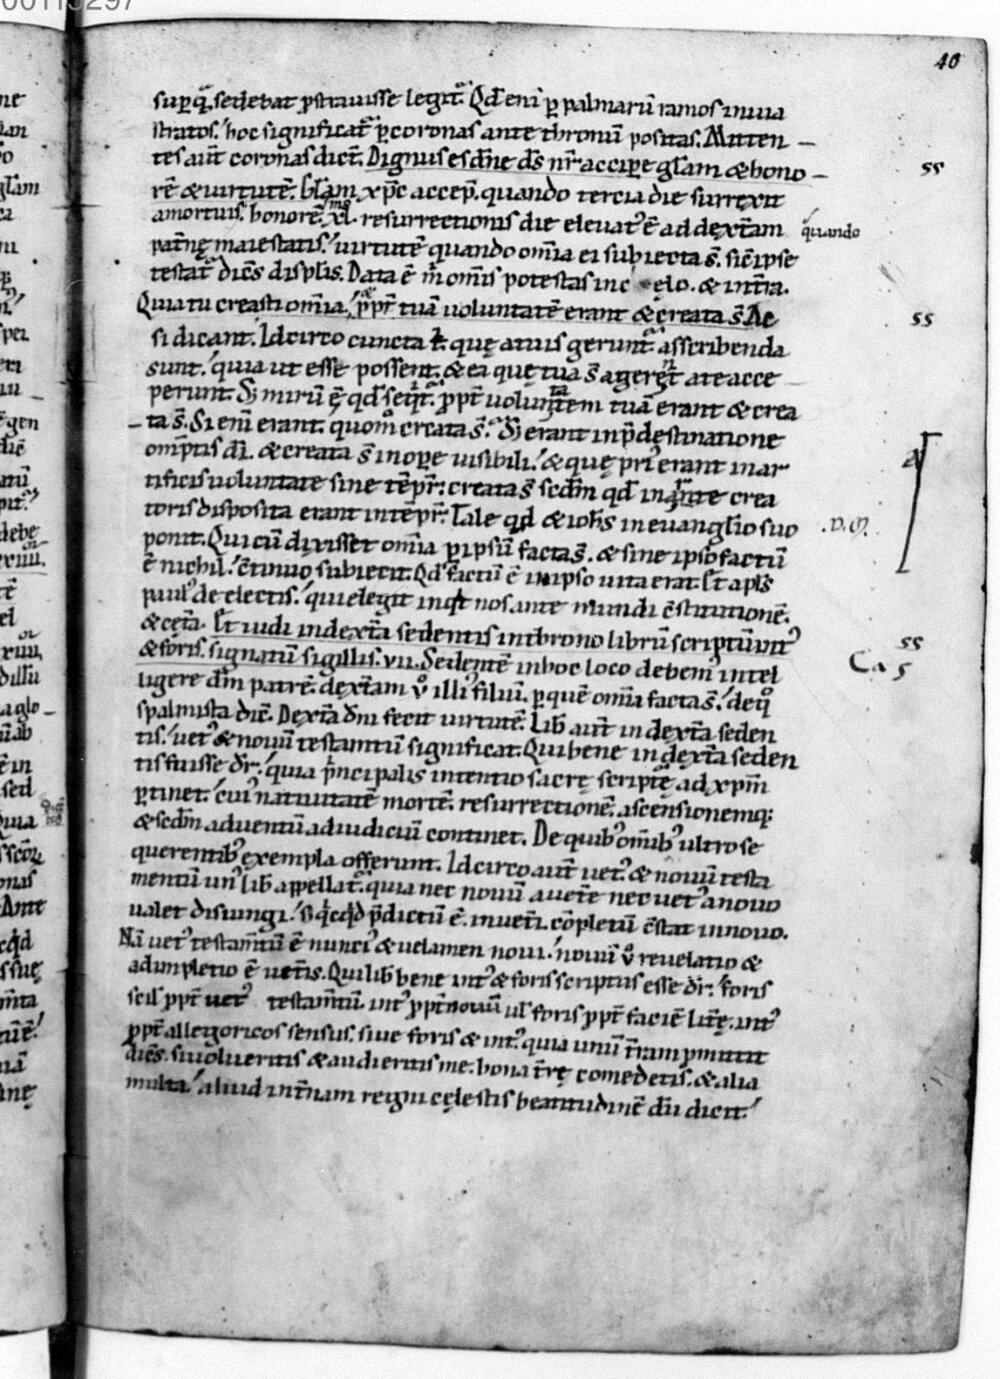 40
sup̱ q̄ sedebat p̱stravisse legit᷑. Qd̄ eni p̱ palmarū ramos in via
stratos. hoc significat᷑ p̱ coronas ante thronū positas. Mitten
tes aūt coronas dict̄. Dignus es dn̄e ds̄ nr̄ accip̱e gl̄am & hono
rē & virtutē. Gl̄am xp̄c accep̄. quando tercia die surrexit
a mortuis. honorē xl. resurrectionis die elevat᷒ ē ad dext̄am
quando
pat̄nę maiestatis. virtutē quando om̄ia ei subiecta s̄. sic̄ ipse
testat᷑ dicēs disp̱lis. Data ē m̄ om̄is potestas in cęlo. & in t̄ra.
Quia tu creasti om̄ia. & p̱pt̄ tuā voluntatē erant & creata s̄. Ac
si dicant. Idcirco cuncta t̄ quę a tuis gerunt᷑ asscribenda
sunt. quia ut esse possent. & ea quę tua s̄ agerēt a te acce
perunt. S; mirū ē qd̄ seqt᷑. p̱pt̄ voluntatem tuā erant & crea
ta s̄. Si eni erant. quom̄ creata s̄. S; erant in p̄destinatione
om̄ptis dī. & creata s̄ in op̱e visibili. & quę pri᷒ erant in ar
tificis voluntate sine tēpr̄. creata s̄ scd̄m qd̄ in mente crea
toris disposita erant in tēpr̄. Tale qd̄ & ioh̄s in evanglio suo
ponit. Qui cū dixisset om̄ia p̱ ipsū facta s̄. & sine ipso factū
ē nichil. ctinuo subiecit. Qd̄ factū ē in ipso vita erat. Et apl̄s
paul᷒ de electis. qui elegit inqt nos ante mundi cstitutionē.
& cęta. Et vidi in dext̄a sedentis in throno librū scriptū int᷒
& foris. signatū sigillis. vii. Sedentē in hoc loco debem᷒ intel
ligere dm̄ patrē. dext̄am v̊ illi᷒ filiū. p̱ quē om̄ia facta s̄. de qo
psalmista dic̄. Dext̄a dn̄i fecit virtutē. Lib aūt in dext̄a seden
tis. vet᷒ & novū testamtū significat. Qui bene in dext̄a seden
tis fuisse dr̄. quia p̱ncipalis intentio sacrę scriptę ad xp̄m
p̱tinet. cui᷒ nativitatē mortē. resurrectionē. ascensionemq;
& scd̄m adventū ad iudiciū continet. De quib᷒ om̄ib᷒ ultro se
querentib᷒ exempla offerunt. Idcirco aūt vet᷒ & novū testa
mentū un᷒ lib appellat᷑. quia nec novū a vetē nec vet᷒ a novo
valet disiungi. & qcqd p̄dictū ē. in vet̄i. cōpletū cstat in novo.
Nā vet᷒ testam̄tū ē nunci᷒ & velamen novi. novū v̊ revelatio &
adimpletio ē vet̄is. Qui lib bene int᷒ & foris scriptus esse dr̄. foris
scil̄ p̱pt̄ vet᷒ testam̄tū. int᷒ p̱pt̄ novū ul̄ foris p̱pt̄ faciē litt̄ę. int᷒
p̱pt̄ allegoricos sensus. sive foris & int᷒. quia unū t̄ram p̱mittit
dicēs. si volueritis & audieritis me. bona t̄rę comedetis. & alia
multa. aliud int̄nam regni cęlestis beatitudinē dū dicit.
ss
ss
ss